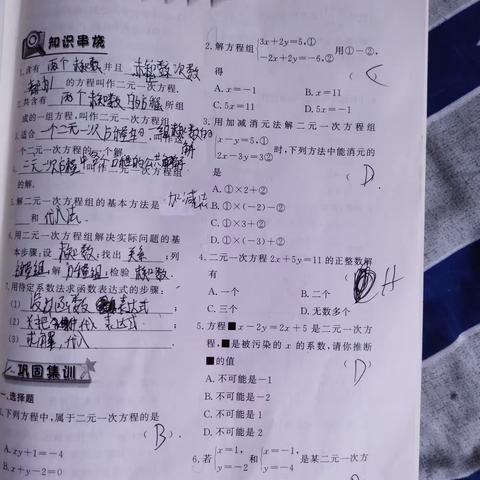 知识串烧
1.含有 两个未知数 并且 未知数次数
都是1 的方程叫作二元一次方程.
2.共含有 两个未知数 的方程 所组
成的一组方程,叫作二元一次方程组.
3.适合 一个二元一次方程的一组未知数的
个二元一次方程的一个解.
叫作二元一次方程组
的解.
5.解二元一次方程组的基本方法是 加减法
和 代入法.
6.用二元一次方程组解决实际问题的基
本步骤:设 未知数;找出 关系;列
方程组;解 方程组;检验 未知数.
7.用待定系数法求函数表达式的步骤:
(1) 设出函数 表达式;
(2) 代入 表达式;
(3) 求解,代入
巩固集训
一、选择题
1.下列方程中,属于二元一次方程的是
( B ).
A.xy+1=-4
B.x+y-2=0
2.解方程组{3x+2y=5,① -2x+2y=-6,② 用①-②,
得 ( C
A.x=-1 B.x=11
C.5x=11 D.5x=-1
3.用加减消元法解二元一次方程组
{x-y=5,① 2x-3y=3② 时,下列方法中能消元的
是 ( D.
A.①×2+②
B.①×(-2)-②
C.①×3+②
D.①×(-3)+②
4.二元一次方程2x+5y=11的正整数解
有
A.一个 B.二个
C.三个 D.无数多个
5.方程■x-2y=2x+5是二元一次方
程,■是被污染的x的系数,请你推断
■的值 ( D )
A.不可能是-1
B.不可能是-2
C.不可能是1
D.不可能是2
6.若{x=1, y=-2 和{x=-1, y=-4 是某二元一次方